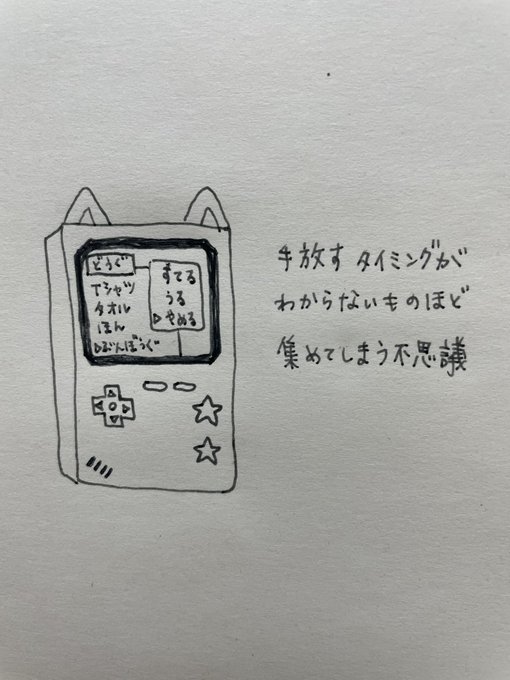 どうぐ
Tシャツ
タオル
ほん
▷ぶんぼうぐ
すてる
うる
▷やめる
手放すタイミングが
わからないものほど
集めてしまう不思議